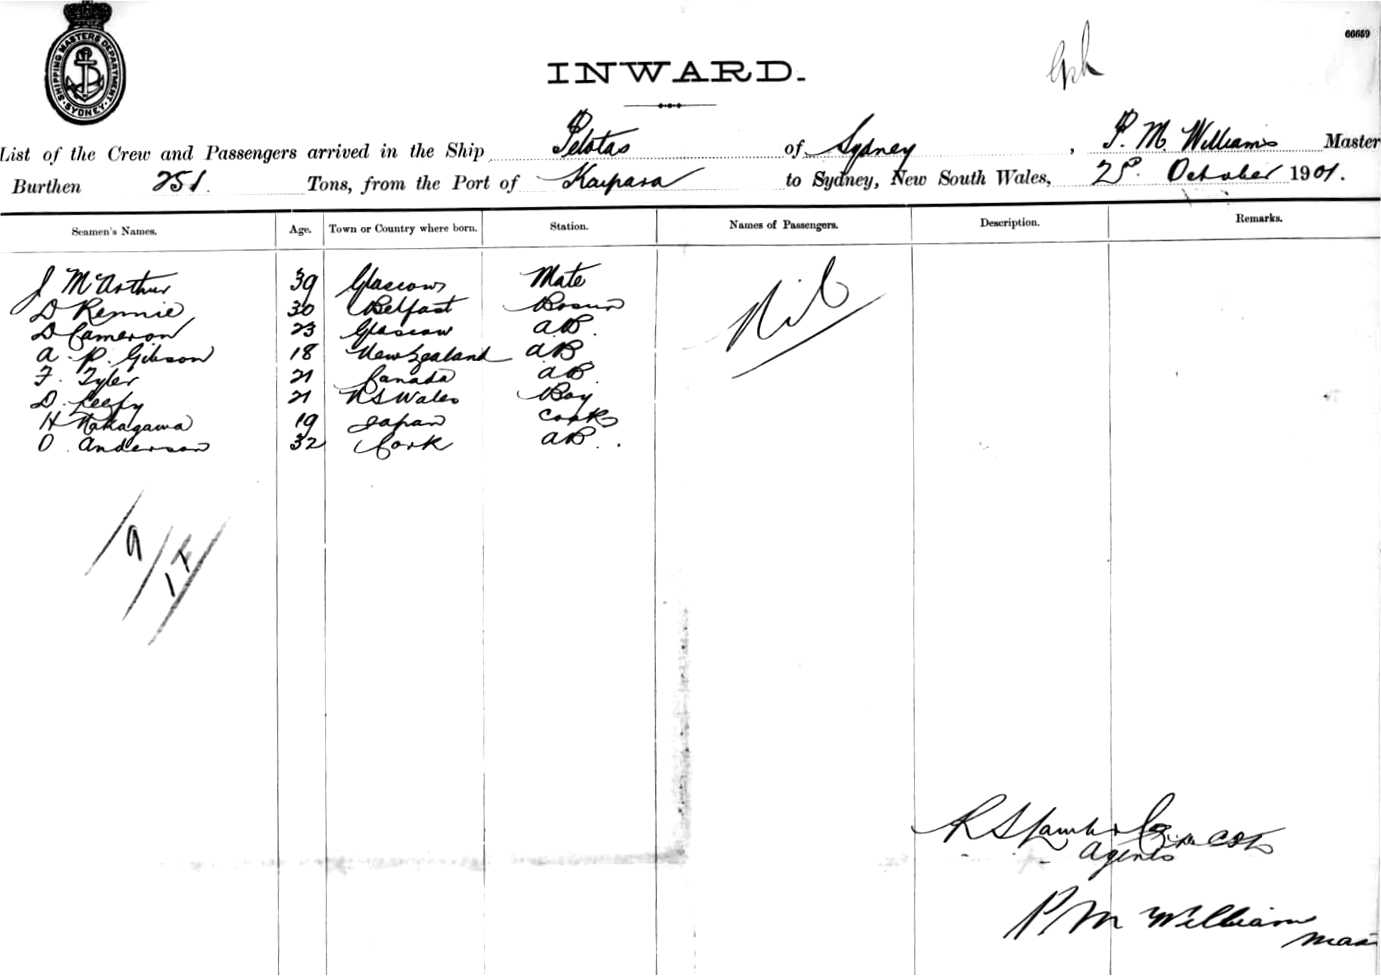 SHIPPING MASTERS DEPARTMENT
SYDNEY
66659
INWARD.
List of the Crew and Passengers arrived in the Ship Pelotas of Sydney, P. M. Williams Master
Burthen 251. Tons, from the Port of Kaipara to Sydney, New South Wales, 28. October 1901.
Seamen's Names. Age. Town or Country where born. Station. Names of Passengers. Description. Remarks.
J McArthur 39 Glascow Mate Nil
D Rennie 30 Belfast Bosun
D Cameron 23 Glascow AB.
A. P. Gibson 18 New Zealand AB
F. Tyler 21 Canada AB.
D. 21 N S Wales Boy
H Nakagawa 19 Japan Cook
O. Anderson 32 Cork AB.
9
17
R S Lamb
Agents
P M William